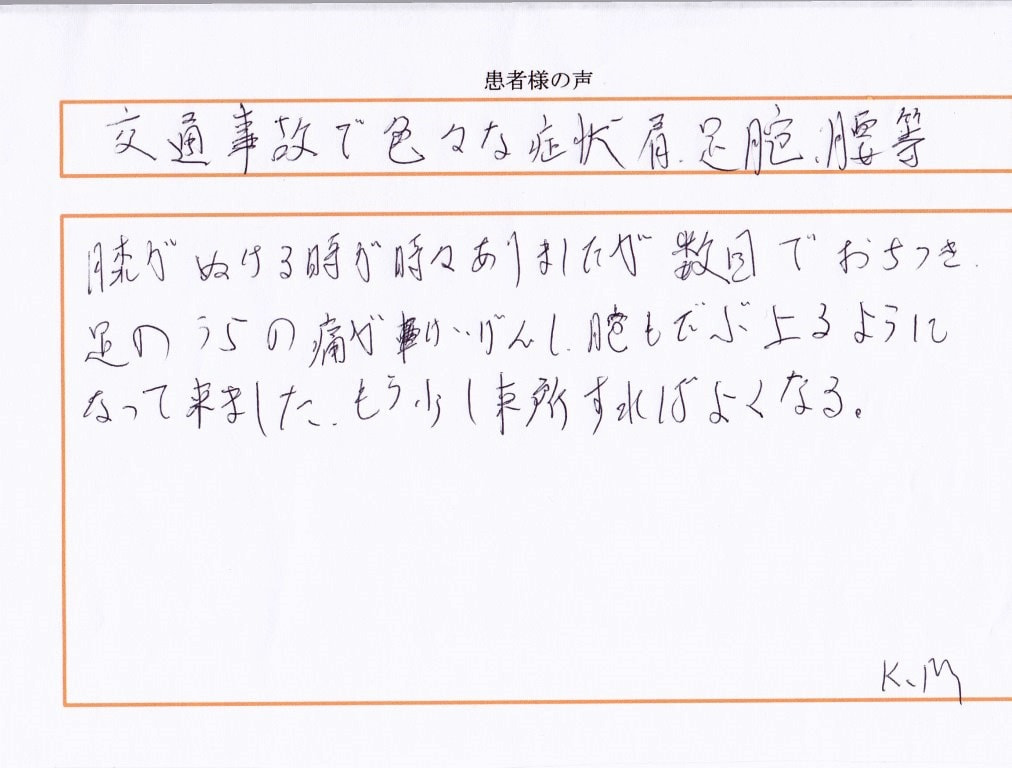 患者様の声
交通事故で色々な症状肩.足腕、腰等
膝がぬける時が時々ありましたが数回でおちつき.
足のうらの痛が軽けいげんし.腕もだいぶ上るように
なって来ました.もう少し来所すればよくなる。
K.M